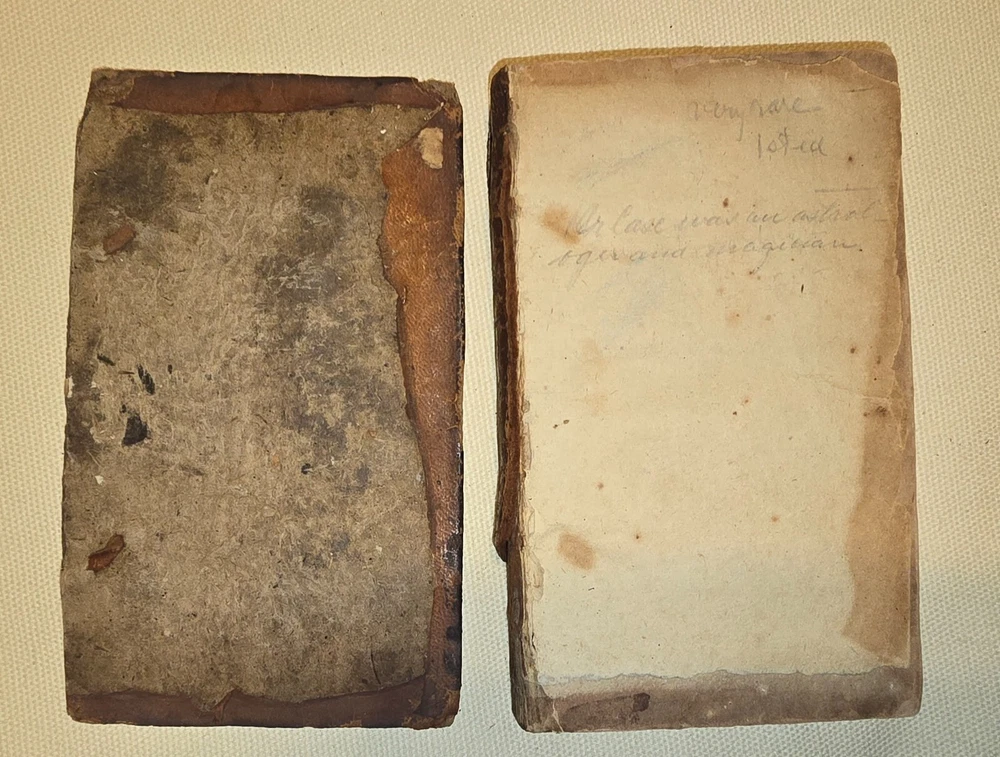 very rare
1st ed
Mr Case was an astrol-
oger and magician.